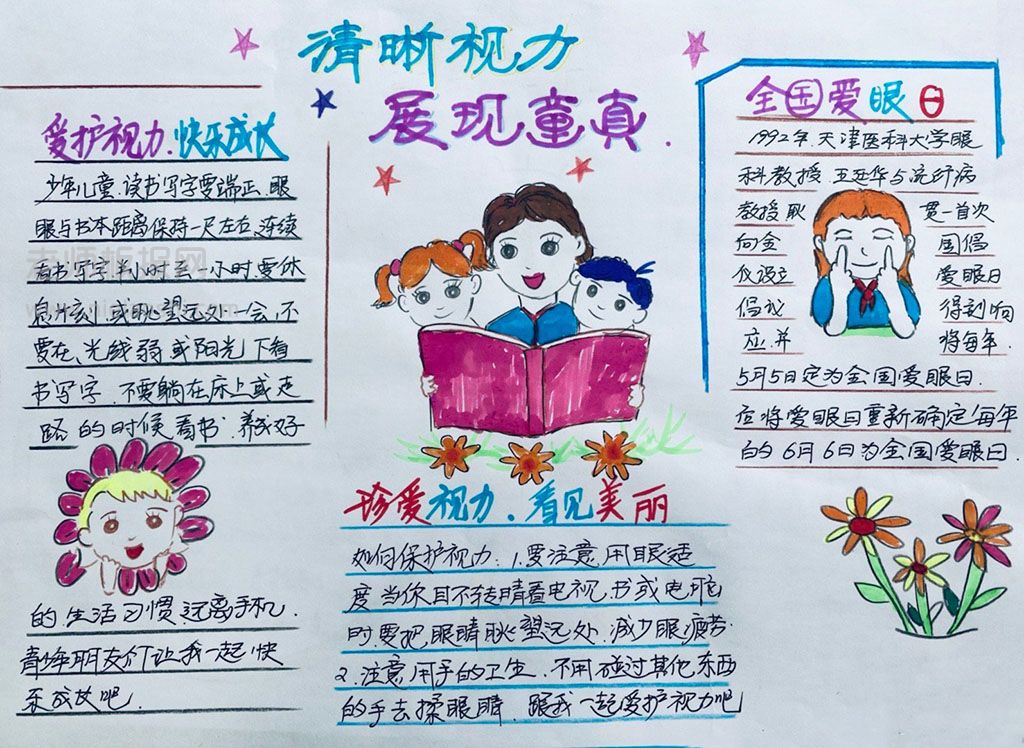 清晰视力
展现童真.
爱护视力.快乐成长
少年儿童.读书写字要端正.眼
眼与书本距离保持一尺左右.连续
看书写字半小时至一小时.要休
息片刻.或眺望远处一会,不
要在光线弱或阳光下看
书写字.不要躺在床上或走
路的时候看书.养成好
的生活习惯.远离手机.
青少年朋友们让我一起快
乐成长吧.
珍爱视力.看见美丽
如何保护视力:1.要注意用眼适
度当你目不转睛看电视.书或电脑
时.要把眼睛眺望远处.减少眼疲劳.
2.注意用手的卫生.不用碰过其他东西
的手去揉眼睛.跟我一起爱护视力吧
全国爱眼日
1992年.天津医科大学眼
科教授.王延华与流行病
教授耿贯一首次
向全国倡
仪设立爱眼日
倡议得到响
应.并将每年.
5月5日定为全国爱眼日.
应将爱眼日重新确定每年
的6月6日为全国爱眼日.